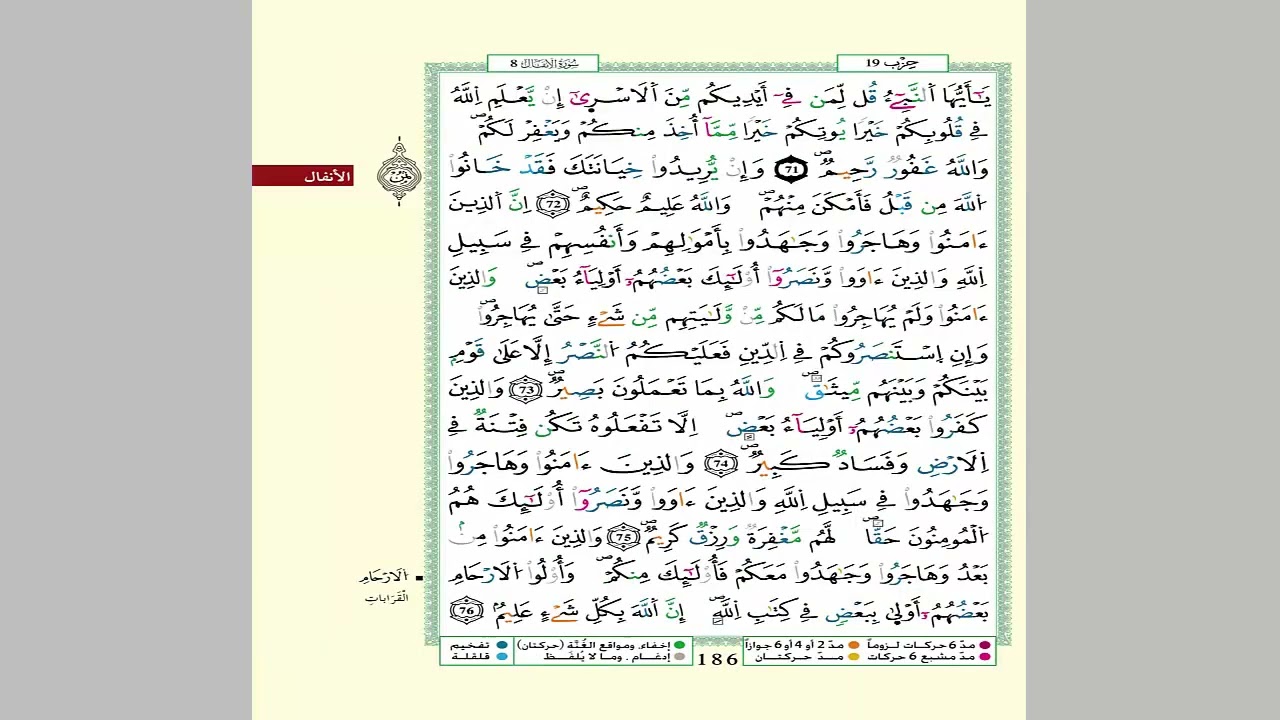 حِزْب 19
سُورَةُ الأَنفَالِ 8
يَٰٓأَيُّهَا اَ۬لنَّبِےٓءُ قُل لِّمَن فِےٓ أَيْدِيكُم مِّنَ اَ۬لَاسْر۪يٰٓ إِنْ يَّعْلَمِ اِ۬للَّهُ
فِے قُلُوبِكُمْ خَيْراٗ يُوتِكُمْ خَيْراٗ مِّمَّآ أُخِذَ مِنكُمْ وَيَغْفِرْ لَكُمْۖ
وَاللَّهُ غَفُورٞ رَّحِيمٞۖ 71 وَإِنْ يُّرِيدُواْ خِيَانَتَكَ فَقَدْ خَانُواْ
اُ۬للَّهَ مِن قَبْلُ فَأَمْكَنَ مِنْهُمْۖ وَاللَّهُ عَلِيمٌ حَكِيمٌۖ 72 اِنَّ اَ۬لذِينَ
ءَامَنُواْ وَهَاجَرُواْ وَجَٰهَدُواْ بِأَمْوَٰلِهِمْ وَأَنفُسِهِمْ فِے سَبِيلِ
اِ۬للَّهِ وَالذِينَ ءَاوَواْ وَّنَصَرُوٓاْ أُوْلَٰٓئِكَ بَعْضُهُمُۥٓ أَوْلِيَآءُ بَعْضٖۖ وَالذِينَ
ءَامَنُواْ وَلَمْ يُهَاجِرُواْ مَا لَكُم مِّنْ وَّلَٰيَتِهِم مِّن شَےْءٍ حَتَّىٰ يُهَاجِرُواْۖ
وَإِنِ اِ۪سْتَنصَرُوكُمْ فِے اِ۬لدِّينِ فَعَلَيْكُمُ اُ۬لنَّصْرُ إِلَّا عَلَىٰ قَوْمِۢ
بَيْنَكُمْ وَبَيْنَهُم مِّيثَٰقٞۖ وَاللَّهُ بِمَا تَعْمَلُونَ بَصِيرٞۖ 73 وَالذِينَ
كَفَرُواْ بَعْضُهُمُۥٓ أَوْلِيَآءُ بَعْضٍۖ اِلَّا تَفْعَلُوهُ تَكُن فِتْنَةٞ فِے
اِ۬لَارْضِ وَفَسَادٞ كَبِيرٞۖ 74 وَالذِينَ ءَامَنُواْ وَهَاجَرُواْ
وَجَٰهَدُواْ فِے سَبِيلِ اِ۬للَّهِ وَالذِينَ ءَاوَواْ وَّنَصَرُوٓاْ أُوْلَٰٓئِكَ هُمُ
اُ۬لْمُومِنُونَ حَقّاٗۖ لَّهُم مَّغْفِرَةٞ وَرِزْقٞ كَرِيمٞۖ 75 وَالذِينَ ءَامَنُواْ مِنۢ
بَعْدُ وَهَاجَرُواْ وَجَٰهَدُواْ مَعَكُمْ فَأُوْلَٰٓئِكَ مِنكُمْۖ وَأُوْلُواْ اُ۬لَارْحَامِ
بَعْضُهُمُۥٓ أَوْل۪يٰ بِبَعْضٖ فِے كِتَٰبِ اِ۬للَّهِۖ إِنَّ اَ۬للَّهَ بِكُلِّ شَےْءٍ عَلِيمٞۖ 76
الأنفال
حِزْب
اُ۬لَارْحَامِ
الْقَرَابَاتِ
مدّ 6 حركات لـزوماً مدّ 2 أو 4 أو 6 جوازاً
مدّ مشبع 6 حركات مــدّ حركتــان
إخفاء، ومواقع الغُنَّة (حركتان) تفخيم
إدغـام، ومـا لا يُلفَـظ قلقلـة
186